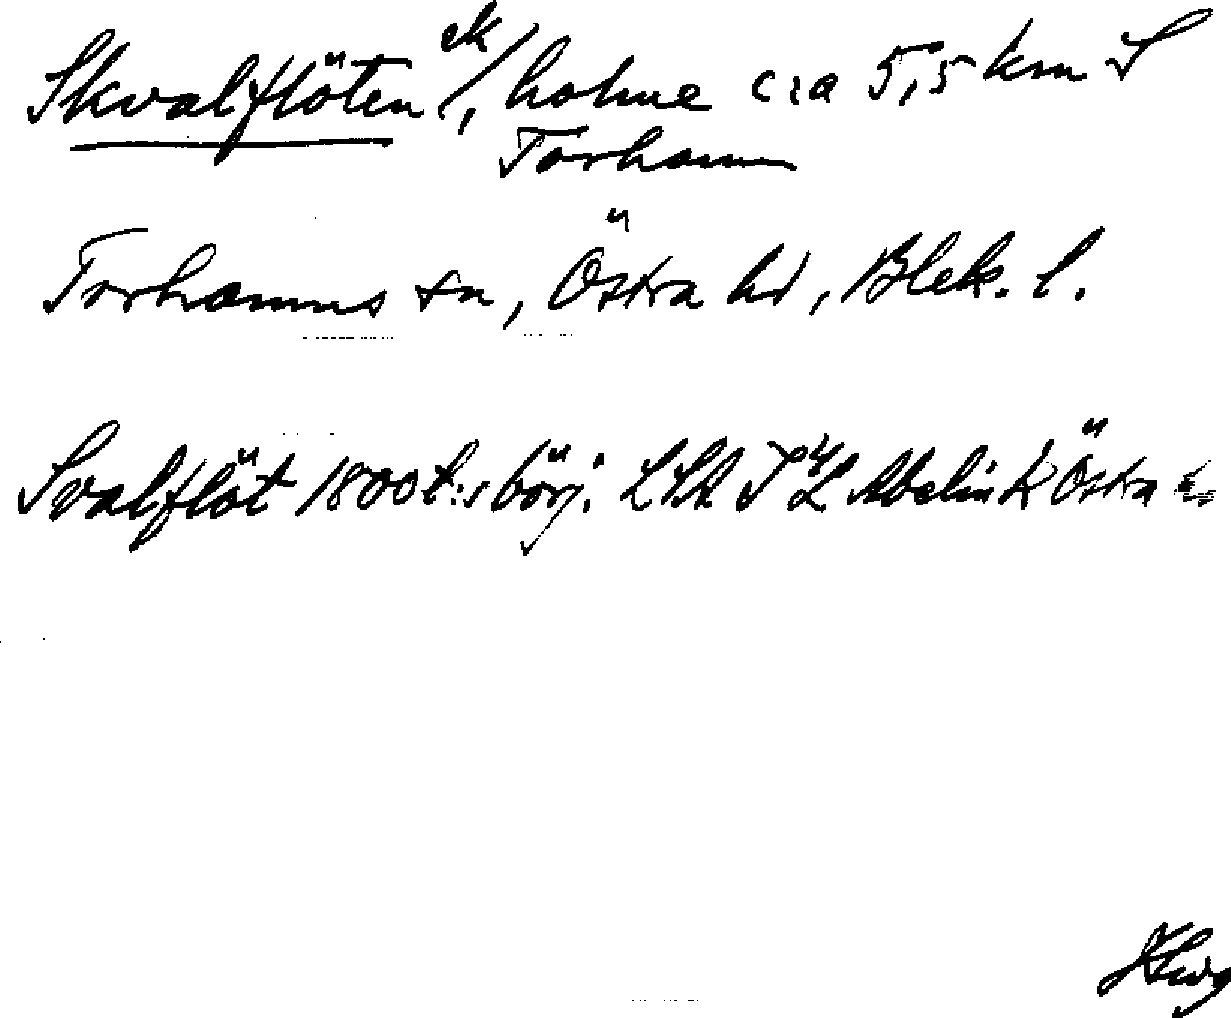 Skvalflöten ek/, holme c:a 5,5 km S
Torhamn
Torhamns sn, Östra hd, Blek. l.
Svalflöt 1800 t:s börj. LSA Abelin k Östra